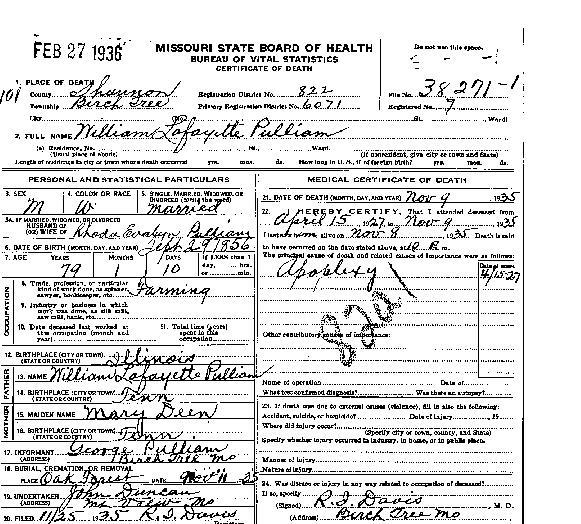 FEB 27 1936
MISSOURI STATE BOARD OF HEALTH
BUREAU OF VITAL STATISTICS
CERTIFICATE OF DEATH
Do not use this space.
1. PLACE OF DEATH
County Shannon Registration District No. 822 File No. 38271-1
Township Birch Tree Primary Registration District No. 6071 Registered No. 9
City No. St. Ward)
2. FULL NAME William Lafayette Pulliam
(a) Residence, No. St. Ward.
(Usual place of abode) (If nonresident, give city or town and State)
Length of residence in city or town where death occurred yrs. mos. ds. How long in U.S., if of foreign birth? yrs. mos. ds.
PERSONAL AND STATISTICAL PARTICULARS
3. SEX M
4. COLOR OR RACE W
5. SINGLE, MARRIED, WIDOWED, OR DIVORCED (write the word) Married
5A. IF MARRIED, WIDOWED, OR DIVORCED
HUSBAND OF
(OR) WIFE OF Rhoda Pulliam
6. DATE OF BIRTH (MONTH, DAY, AND YEAR) Sept 29 1856
7. AGE YEARS MONTHS DAYS If LESS than 1
79 1 10 day, hrs.
or min.
OCCUPATION
8. Trade, profession, or particular kind of work done, as spinner, sawyer, bookkeeper, etc. Farming
9. Industry or business in which work was done, as silk mill, saw mill, bank, etc.
10. Date deceased last worked at this occupation (month and year)
11. Total time (years) spent in this occupation
12. BIRTHPLACE (CITY OR TOWN) Illinois
(STATE OR COUNTRY)
FATHER
13. NAME William Lafayette Pulliam
14. BIRTHPLACE (CITY OR TOWN) Tenn
(STATE OR COUNTRY)
MOTHER
15. MAIDEN NAME Mary Deen
16. BIRTHPLACE (CITY OR TOWN) Tenn
(STATE OR COUNTRY)
17. INFORMANT George Pulliam
(ADDRESS) Birch Tree Mo
18. BURIAL, CREMATION, OR REMOVAL
PLACE Oak Forest DATE Nov 11 35
19. UNDERTAKER John Duncan
(ADDRESS) Mt View Mo
20. FILED 11/25 1935 R. I. Davis
MEDICAL CERTIFICATE OF DEATH
21. DATE OF DEATH (MONTH, DAY, AND YEAR) Nov 9 1935
22. I HEREBY CERTIFY, That I attended deceased from
April 15 1927, to Nov 9 1935
I last saw alive on Nov 8 1935 Death is said
to have occurred on the date stated above, at
The principal cause of death and related causes of importance were as follows:
Date of onset
Apoplexy 4/15-27
82a1
Other contributory causes of importance:
Name of operation Date of
What test confirmed diagnosis? Was there an autopsy?
23. If death was due to external causes (violence), fill in also the following:
Accident, suicide, or homicide? Date of injury , 19
Where did injury occur?
(Specify city or town, county, and State)
Specify whether injury occurred in industry, in home, or in public place.
Manner of injury
Nature of injury
24. Was disease or injury in any way related to occupation of deceased?
If so, specify
(Signed) R. I. Davis , M. D.
(Address) Birch Tree Mo